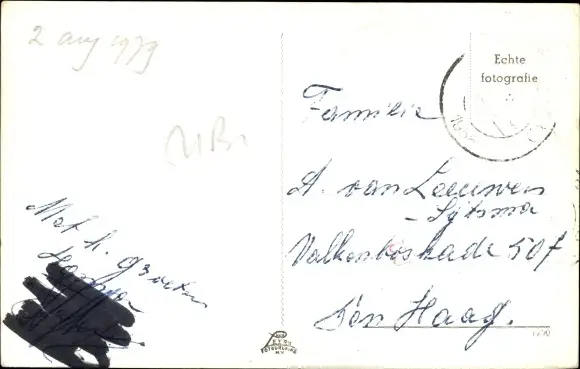 2 aug 1979
Echte
fotografie
Familie
A. van Leeuwen
- Sijtsma
Valkenboskade 507
Den Haag.
Met h. groeten